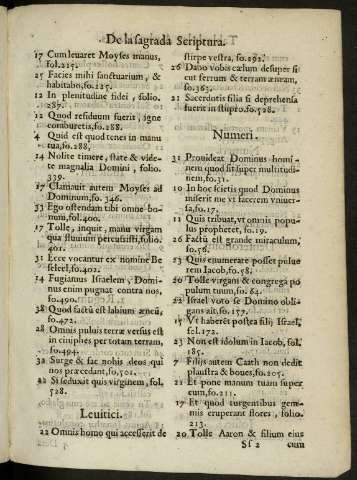 De la sagrada Scriptura.
17 Cum leuaret Moyses manus,
fol.215.
25 Facies mihi sanctuarium, &
habitabo, fo.225.
12 In plenitudine fidei, folio
287.
12 Quod residuum fuerit, igne
comburetis, fo.288.
4 Quid est quod tenes in manu
tua, fo.288.
14 Nolite timere, state & vide-
te magnalia Domini, folio
339.
17 Clamauit autem Moyses ad
Dominum, fo.346.
33 Ego ostendam tibi omne bo-
num, fol.400.
17 Tolle, inquit, manu virgam
qua fluuium percussisti, folio
401.
31 Ecce vocantur ex nomine Be
seleel, fo.402.
14 Fugiamus Israelem, Domi-
nus enim pugnat contra nos,
fo.490.
38 Quod factū est labium æneū,
fo.472.
28 Omnis puluis terræ versus est
in ciniphes per totam terram,
fo.494.
32 Surge & fac nobis deos qui
nos præcedant, fo.501.
22 Si seduxat quis virginem, fol.
528.
Leuitici.
22 Omnis homo qui accesserit de
stirpe vestra, fo.292.
26 Dabo vobis cælum desuper si
cut ferrum & terram æneam,
fo.363.
21 Sacerdotis filia si deprehensa
fuerit in stupro, fo.528.
Numeri.
31 Prouideat Dominus homi-
nem quod sit super multitudi-
nem, fo.31.
10 In hoc scietis quod Dominus
miserit me vt facerem vniuer-
sa, fo.17.
11 Quis tribuat, vt omnis popu-
lus prophetet, fo.19.
26 Factū est grande miraculum,
fo.56.
23 Quis enumerare posset pulue
rem Iacob, fo.58.
20 Tolle virgam & congrega po
pulum tuum, fo.64.
22 Israel voto se Domino obli-
gans ait, fo.157.
15 Vt haberēt postea filij Israel,
fol.172.
23 Non est idolum in Iacob, fol.
185.
7 Filijs autem Caath non dedit
plaustra & boues, fo.205.
21 Et pone manum tuam super
eum, 211.
17 Et quod turgentibus gem-
mis eruperant flores, folio
213.
20 Tolle Aaron & filium eius
Ss 2 cum